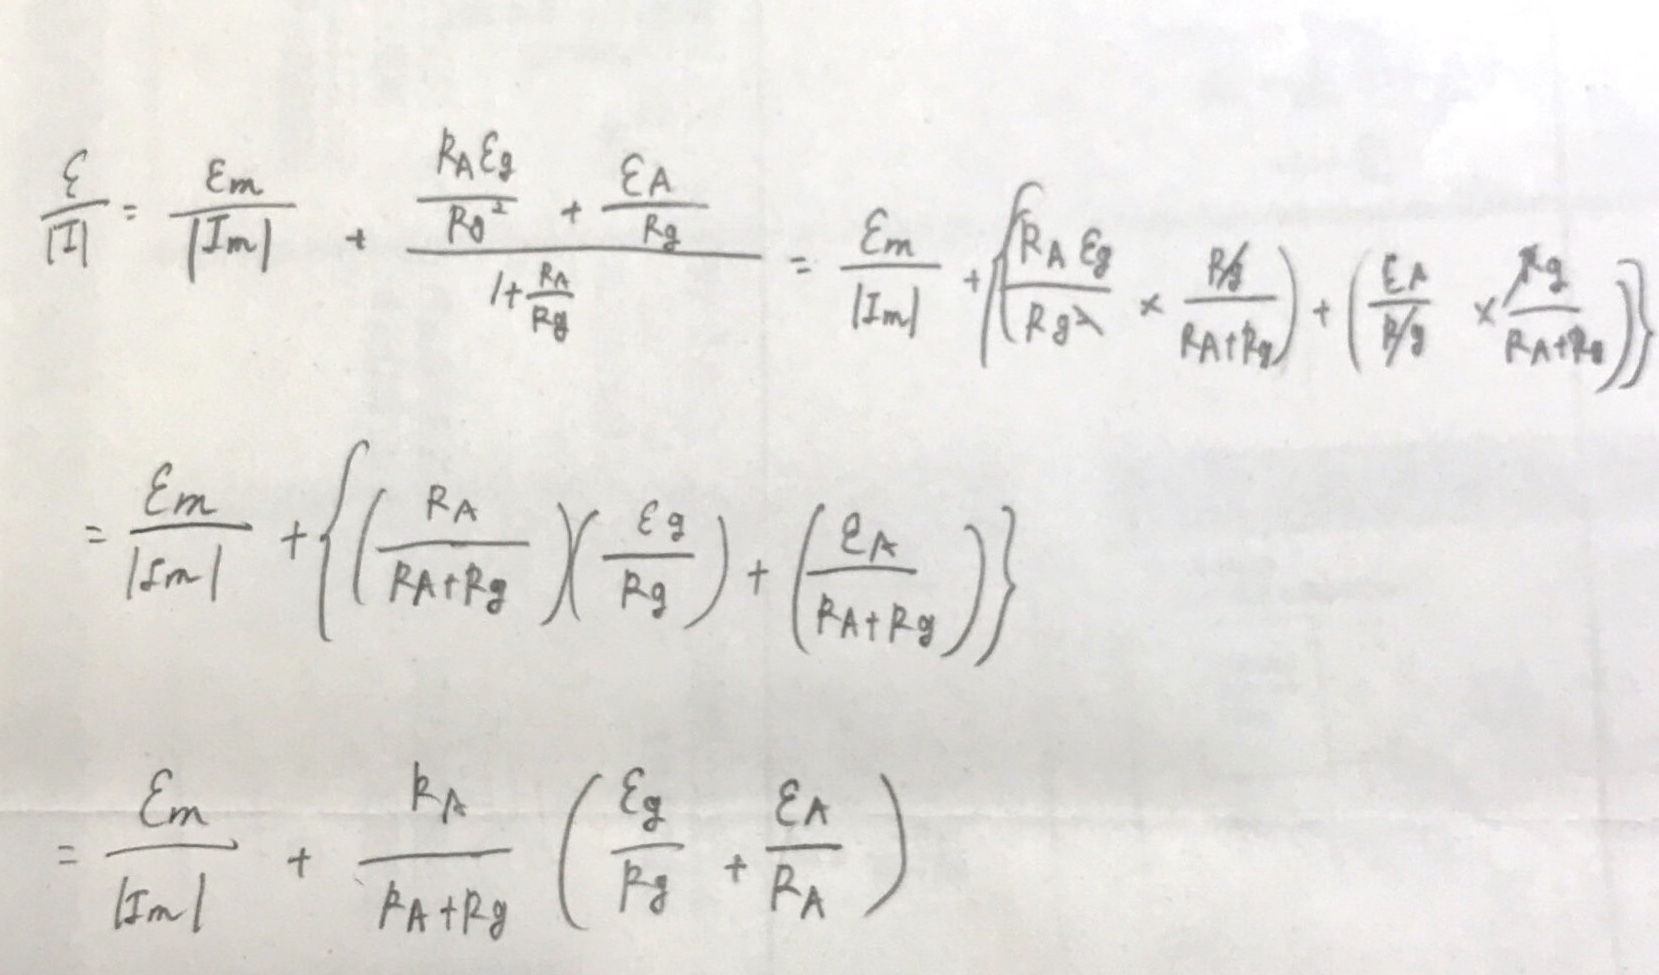 ε/|I| = εm/|Im| + (RAεg/Rg² + εA/Rg)/(1+RA/Rg) = εm/|Im| + {(RAεg/Rg² × Rg/(RA+Rg)) + (εA/Rg × Rg/(RA+Rg))}
= εm/|Im| + {(RA/(RA+Rg))(εg/Rg) + (εA/(RA+Rg))}
= εm/|Im| + RA/(RA+Rg) (εg/Rg + εA/RA)